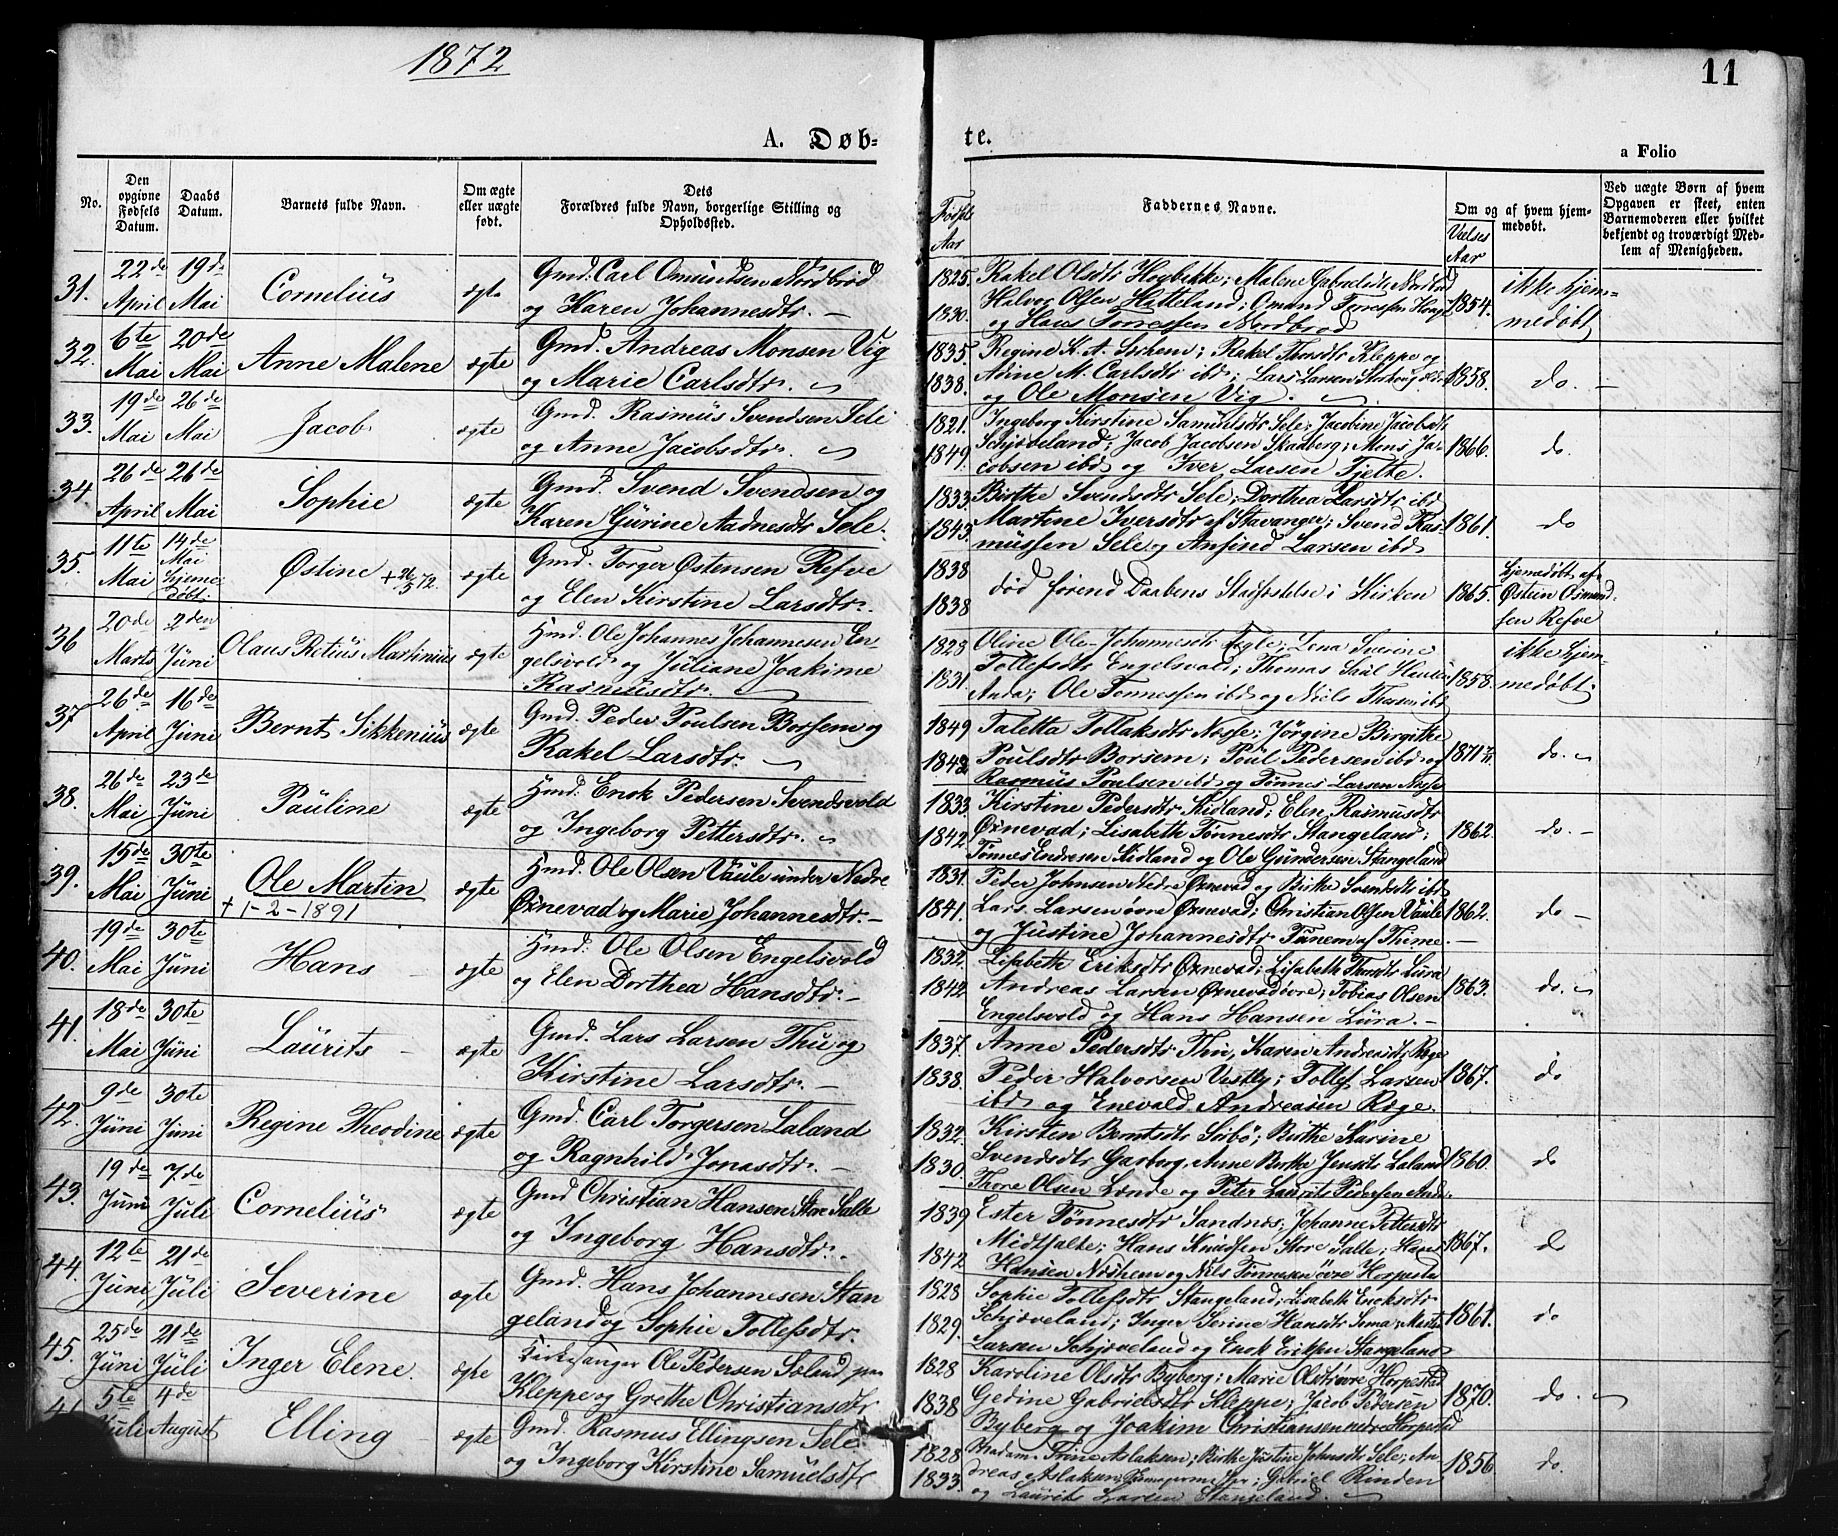 1872
11
A. Døb-
te.
a Folio
No.
Den opgivne Fødsels Datum.
Daabs Datum.
Barnets fulde Navn.
Om ægte eller uægte født.
Dets Forældres fulde Navn, borgerlige Stilling og Opholdssted.
Fødsels Aar
Faddernes Navne.
Om og af hvem hjemmedøbt.
Vielses Aar
Ved uægte Børn af hvem Opgaven er skeet, enten Barnemoderen eller hvilket bekjendt og troværdigt Medlem af Menigheden.
31. 22de April 19de Mai Cornelius ægte
Gmd. Carl Omundsen Nordbrød
og Karen Johannesdtr.
1825. 1830.
Rakel Olsdtr Høybakke; Malene Gabrielsdtr Nordbrød
Halvor Olsen Hatteland; Omund Torressen
og Hans Torressen Nordbrød
1854. ikke hjem-
medøbt
32. 6te Mai 20de Mai Anne Malene ægte
Gmd. Andreas Monsen Vig
og Marie Carlsdtr.
1835. 1838.
Regine K. A. Sorhem; Rakel Thorsdtr Kleppe og
Anne M. Carlsdtr ibd; Lars Larsen
og Ole Monsen Vig.
1858. do.
33. 19de Mai 26de Mai Jacob ægte
Gmd. Rasmus Svendsen Sele
og Anne Jacobsdtr.
1821. 1849.
Ingeborg Kirstine Samuelsdtr Sele; Jacobine Jacobsdtr
Schjøveland; Jacob Jacobsen Skadberg; Mons Ja-
cobsen ibd og Iver Larsen Tjelte.
1866. do.
34. 26de April 26de Mai Sophie ægte
Gmd. Svend Svendsen og
Karen Gurine Aadnesdtr Sele.
1833 1845.
Birthe Svendsdtr Sele; Dorthea Larsdtr ibd
Martine Iversdtr af Stavanger; Svend Ras-
mussen Sele og Ansind Larsen ibd
1861. do
35. 11te Mai 14de Mai hjeme døbt. Østine + 26/5 72. ægte
Gmd. Torger Østensen Refve
og Elen Kirstine Larsdtr.
1838 1838
død førend Daabens Stadfæstelse i Kirken
1865. hjemedøbt af
Østein Osmund-
sen Refve
36 20de Marts 2den Juni Olaus Rotius Martinius ægte
Hmd. Ole Johannes Johannesen En-
gelsvold og Juliane Joakime
Rasmusdtr.
1823 1831.
Oline Ole-Johannesdtr; Lena Sverine
Tollefsdtr Engelsvold; Thomas Saul
Anda; Ole Tønnessen ibd og Niels Thorsen ibd
1858. ikke hjem-
medøbt
37 26de April 16de Juni Bernt Sikkenius ægte
Gmd. Peder Poulsen Borsem og
Rakel Larsdtr.
1849 1842
Taletta Tollaksdtr Nosse; Jørgine Birgithe
Poulsdtr Borsem; Poul Pedersen ibd og
Rasmus Poulsen ibd og Tønnes Larsen Nosse
1871 do.
38. 26de Mai 23de Juni Pauline ægte
Hmd. Enok Pedersen Svendsvold
og Ingeborg Pettersdtr.
1833. 1842.
Kirstine Pedersdtr Kidland; Elen Rasmusdtr
Øxnevad; Lisabeth Tønnesdtr Stangeland;
Tønnes Endresen Kidland og Ole Gundersen Stangeland
1862. do.
39. 15de Mai 30te Juni Ole Martin
+ 1-2-1891
ægte
Hmd. Ole Olsen Vaule under Nedre
Øxnevad og Marie Johannesdtr.
1831. 1841.
Peder Johnsen Nedre Øxnevad og Birthe Svendsdtr ibd
Lars Larsen øvre Øxnevad; Christian Olsen Vaule
og Justine Johannesdtr Tunem af Thime.
1862. do
40. 19de Mai 30te Juni Hans ægte
Hmd. Ole Olsen Engelsvold
og Elen Dorthea Hansdtr.
1832. 1842.
Lisabeth Eriksdtr Øxnevad; Lisabeth Thorsdtr Lura
Andreas Larsen Øxnevad øvre; Tobias Olsen
Engelsvold og Hans Hansen Lura.
1863. do.
41. 18de Mai 30te Juni Laurits ægte
Gmd. Lars Larsen Thu og
Kirstine Larsdtr.
1837. 1838.
Anne Pedersdtr Thu, Karen Andreasdtr Røge
Peder Halvorsen Vestly; Tollef Larsen
ibd og Enevald Andreasen Røge.
1867. do
42. 9de Juni 30te Juni Regine Theodine ægte
Gmd. Carl Torgersen Laland
og Ragnhild Jonasdtr.
1832. 1830.
Kirsten Berntsdtr Sirbø; Birthe Karine
Svendsdtr Garborg; Anne Berthe Jensdtr Laland
Thore Olsen Lende og Peter Laurits Pedersen Anda.
1860. do
43. 19de Juni 7de Juli Cornelius ægte
Gmd Christian Hansen Store Salte
og Ingeborg Hansdtr.
1839 1842
Ester Tønnesdtr Sandnæs; Johanne Pettersdtr
Midtsalte; Hans Knudsen Store Salte; Hans
Hansen Næshem og Nils Tønnesen øvre Horpestad
1867. do
44. 12te Juni 21de Juli Severine ægte
Gmd. Hans Johannesen Stan
geland og Sophie Tollefsdtr.
1828 1829.
Sophie Tollefsdtr Stangeland; Lisabeth Enoksdtr
Schjøveland; Inger Serine Hansdtr
Larsen Schjøveland og Enok Eriksen Stangeland
1861. do
45. 25de Juni 21de Juli Inger Elene. ægte
Kirkesanger Ole Pedersen Solund paa
Kleppe og Grethe Christiansdtr
1828 1838
Karoline Olsdtr Byberg; Marie Olsdtr øvre Horpestad
Gedine Gabrielsdtr Kleppe; Jacob Pedersen
Byberg og Joakim Christiansen nedre Horpestad
1870. do.
46. 5te Juli 4de August Elling ægte
Gmd. Rasmus Ellingsen Sele
og Ingeborg Kirstine Samuelsdtr
1828 1833.
Madam Trine Aslaksen; Birthe Justine Johnsdtr Sele; An-
dreas Aslaksen; Gabriel Rinden
og Laurits Larsen Stangeland
1856 do.